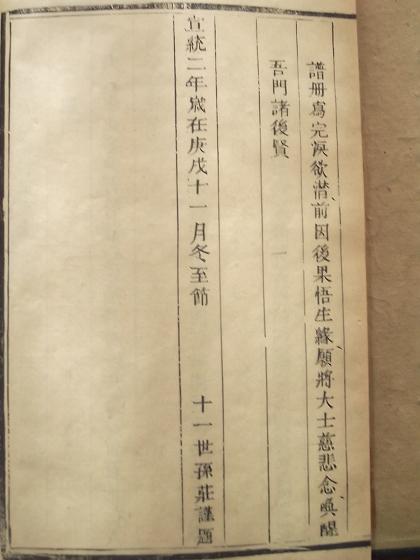 譜册寫完淚欲潸前因後果悟生緣願將大士慈悲念喚醒
吾門諸後賢
宣統二年歲在庚戌十一月冬至節
十一世孫莊謹題